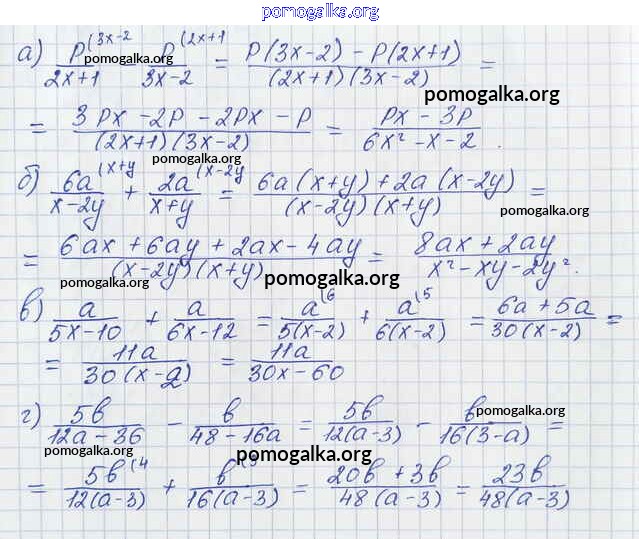 pomogalka.org
а) p(3x-2 / 2x+1 - p(2x+1 / 3x-2 = p(3x-2) - p(2x+1) / (2x+1)(3x-2) =
pomogalka.org
pomogalka.org
= 3px - 2p - 2px - p / (2x+1)(3x-2) = px - 3p / 6x² - x - 2 .
pomogalka.org
pomogalka.org
б) 6a(x+y / x-2y + 2a(x-2y / x+y = 6a(x+y) + 2a(x-2y) / (x-2y)(x+y) =
pomogalka.org
pomogalka.org
= 6ax + 6ay + 2ax - 4ay / (x-2y)(x+y) = 8ax + 2ay / x² - xy - 2y² .
pomogalka.org
pomogalka.org
в) a / 5x-10 + a / 6x-12 = a(6 / 5(x-2) + a(5 / 6(x-2) = 6a + 5a / 30(x-2) =
= 11a / 30(x-2) = 11a / 30x-60
pomogalka.org
г) 5b / 12a-36 - b / 48-16a = 5b / 12(a-3) - b / 16(3-a) =
pomogalka.org
pomogalka.org
pomogalka.org
pomogalka.org
= 5b(4 / 12(a-3) + b(3 / 16(a-3) = 20b + 3b / 48(a-3) = 23b / 48(a-3)
pomogalka.org
pomogalka.org